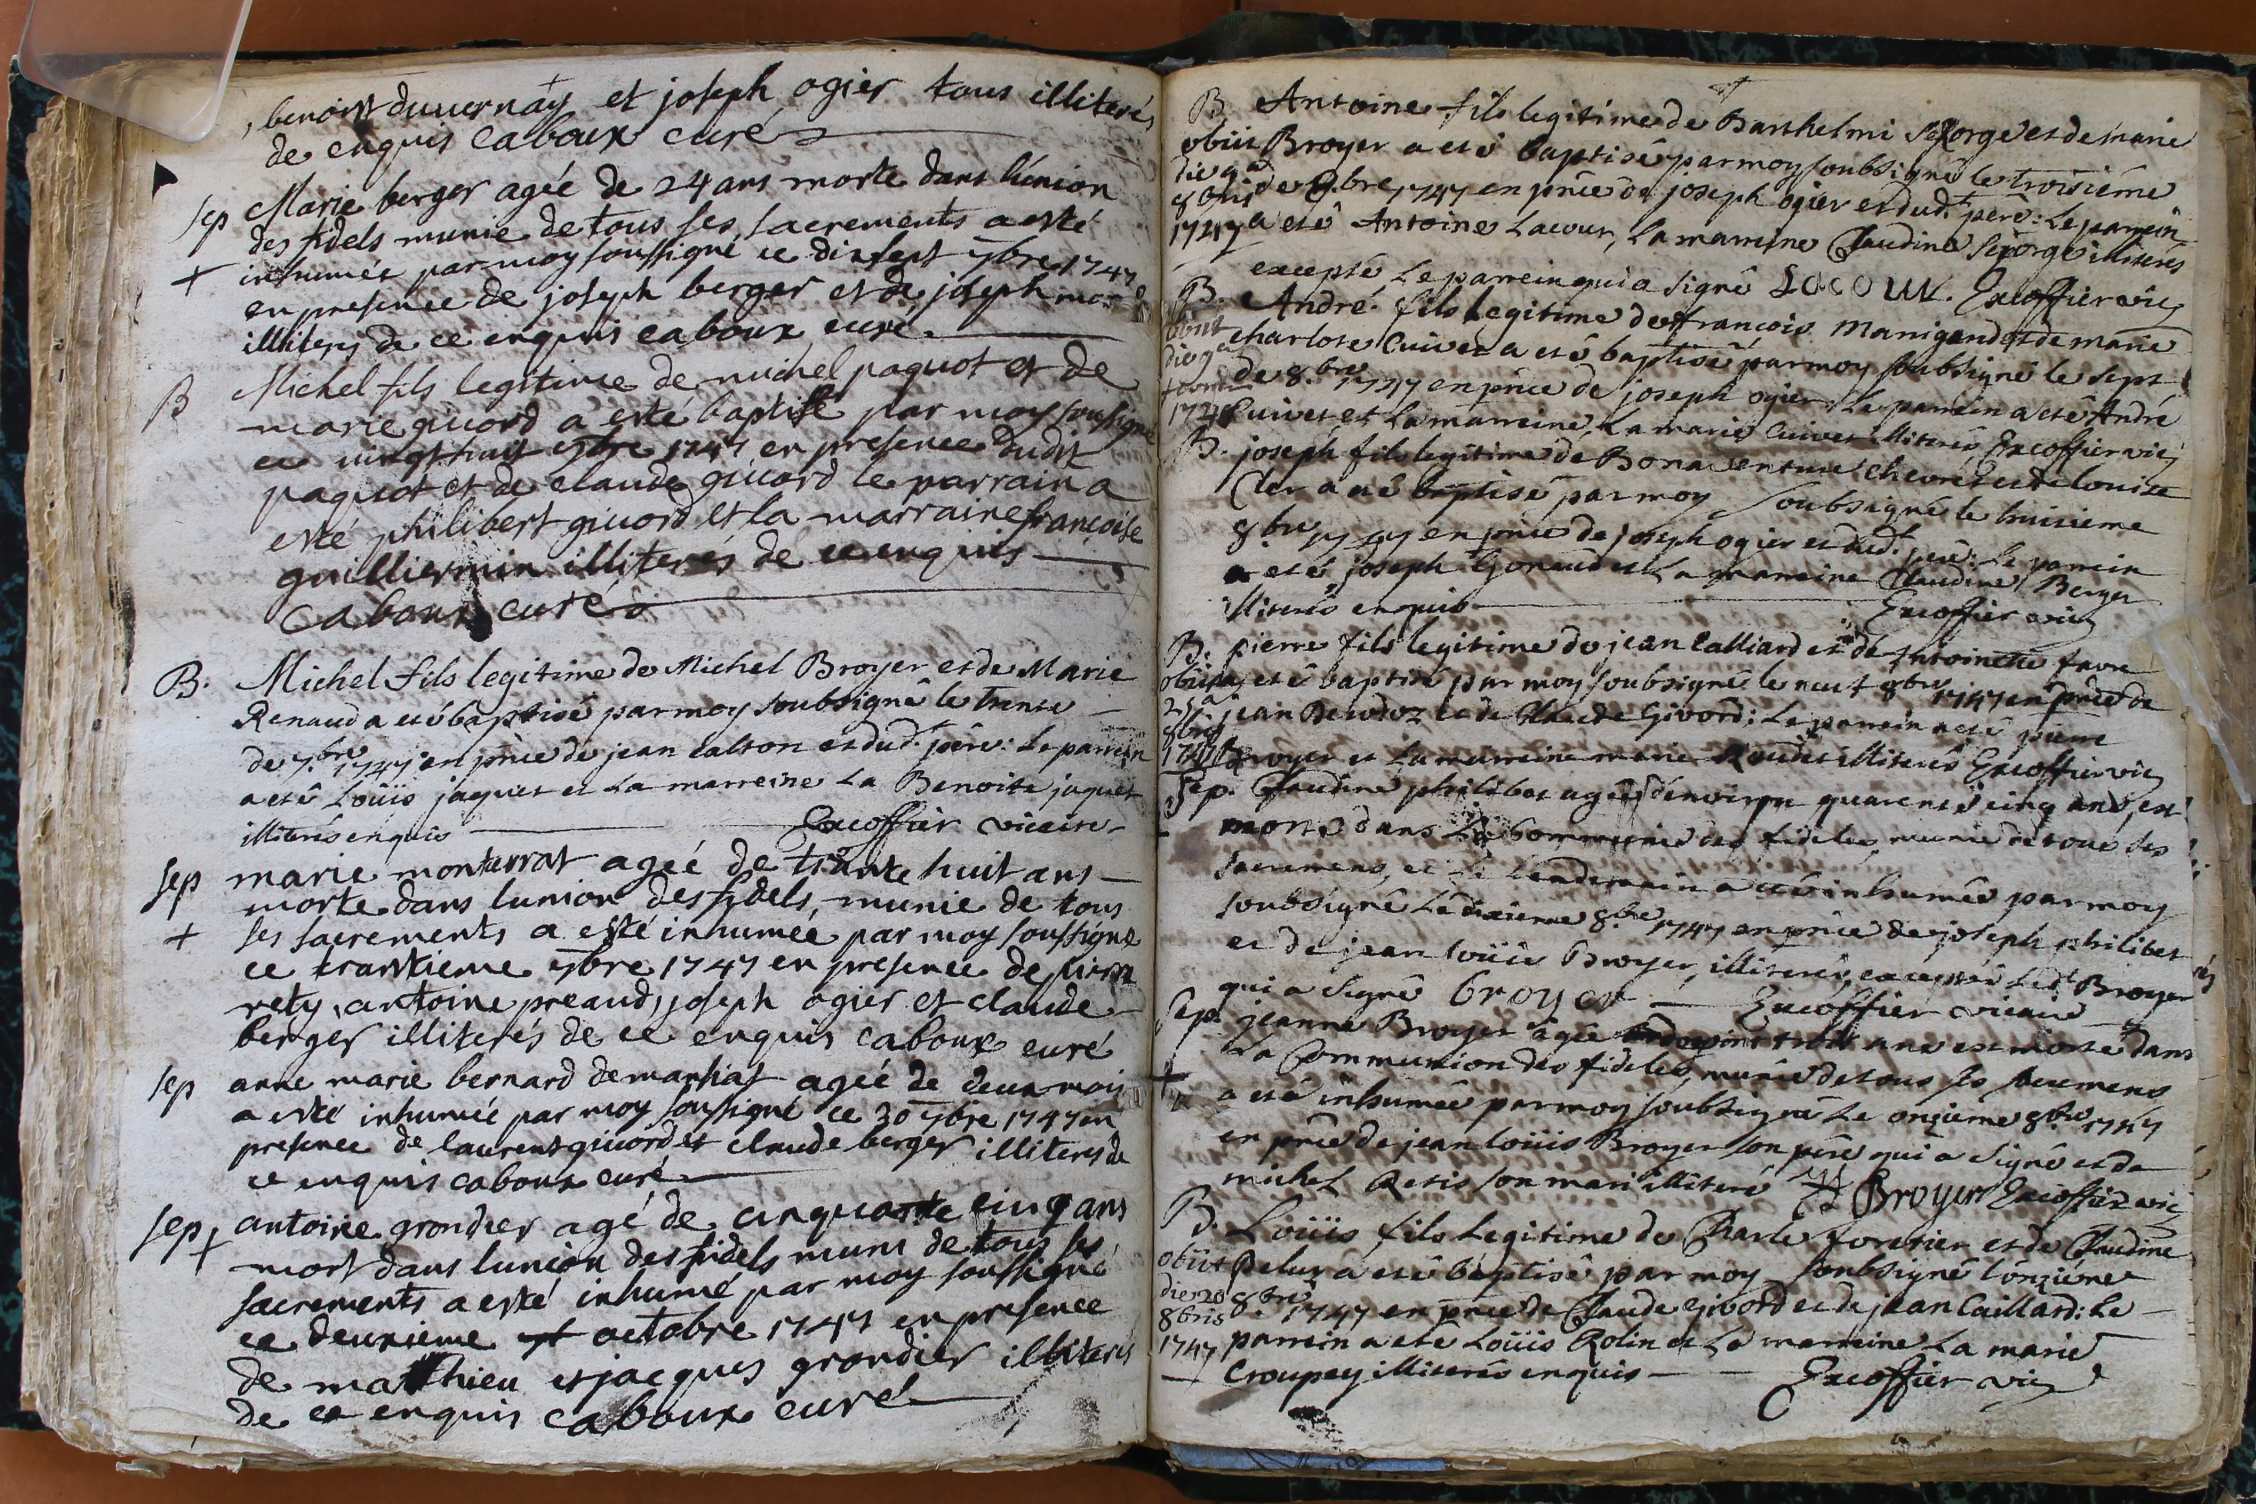 benoist duuernay et joseph ogier tous illiterés
de enquis caboux curé
sep Marie berger agée de 24 ans morte dans l'union
des fidels munie de tous ses sacrements a esté
+ inhumée par moy soussigné ce dixsept 7bre 1747
en presence de joseph berger et de joseph
illiterés de ce enquis caboux curé
B Michel fils legitime de michel paquot et de
marie giuord a esté baptisé par moy soussigné
ce uingt huit 7bre 1747 en presence dudit
paquot et de claude giuord le parrain a
esté philibert giuord et la marraine françoise
guilliermin illiterés de ce enquis
caboux curé
B. Michel fils legitime de Michel Broyer et de Marie
Renaud a eté baptisé par moy soubsigné le trente
de 7.bre 1747 en pnce de jean calson et dud. pere: Le parrein
a eté Loüis jaquet et la marreine La Benoite jaquet
illiterés enquis Excoffier vicaire
sep marie monterrat agée de trante huit ans
morte dans lunion des fidels, munie de tous
+ ses sacrements a esté inhumée par moy soussigné
ce trantieme 7bre 1747 en presence de pierre
rety, antoine preaud, joseph ogier et claude
berger illiterés de ce enquis caboux curé
sep anne marie bernard de agée de deux mois
a esté inhumée par moy soussigné ce 30 7bre 1747 en
presence de laurent giuord et claude berger illiterés de
ce enquis caboux curé
sep antoine grondier agé de cinquante cinq ans
+ mort dans lunion des fidels muni de tous ses
sacrements a esté inhumé par moy soussigné
ce deuxieme octobre 1747 en presence
de matthieu et jacques grondier illiterés
de ce enquis caboux curé
B Antoine fils legitime de Barthelmi et de marie
obiit Broyer a eté baptisé par moy soubsigné le troisiéme
die 9a de 8.bre 1747 en pnce de joseph ogier et dud.t pere: Le parrein
8bris
1747 a eté Antoine Lacour, La marreine Claudine illiterés
excepté Le parrein qui a signé Lacour. Excoffier vic
B. André fils legitime de françois Manigand et de marie
obiit charlote Cuivet a eté baptisé par moy soubsigné le sept
die de 8.bre 1747 en pnce de joseph ogier: Le parrein a eté André
Cuivet et La marreine, La marie Cuivet illiterés Excoffier vic
B. joseph fils legitime de Bonaventure chevret et de louise
Cler a eté baptisé par moy soubsigné le huitieme
8.bre 1747 en pnce de joseph ogier et dud.t pere: Le parrein
a eté joseph et La marreine Claudine Berger
illiterés enquis Excoffier vic
B. pierre fils legitime de jean Calliard et de Antoinette favre
obiit a eté baptisé par moy soubsigné le neuf 8bre 1747 en pnce de
25a jean et de Claude Givord; Le parrein a eté pierre
8bris
1747 Broyer et La marreine marie illiterés Excoffier vic
Sep. Claudine philibet agée d'environ quarente cinq ans, est
morte dans La Communion des fideles, munie de tous les
sacremens, et Le Lendemain a eté inhumée par moy
soubsigné Le dixieme 8.bre 1747 en pnce de joseph philibet
et de jean Loüis Broyer, illiterés, excepté Led.t Broyer
qui a signé broyer Excoffier vicaire
Sep. jeanne Broyer agée vint trois ans est morte dans
+ La Communion des fideles, munie de tous les sacremens
a eté inhumée par moy soubsigné Le onzieme 8.bre 1747
en pnce de jean Loüis Broyer son pere qui a signé et de
michel Retis son mari illiteré Broyer Excoffier vic
B. Loüis fils Legitime de Charle foretier et de Claudine
obiit Pelux a eté baptisé par moy soubsigné l'onziéme
die 20 8.bre 1747 en pnce de Claude Givord et de jean Caillard: Le
8bris
1747 parrein a eté Loüis Rolin et La marreine La marie
Croupey illiterés enquis Excoffier vic